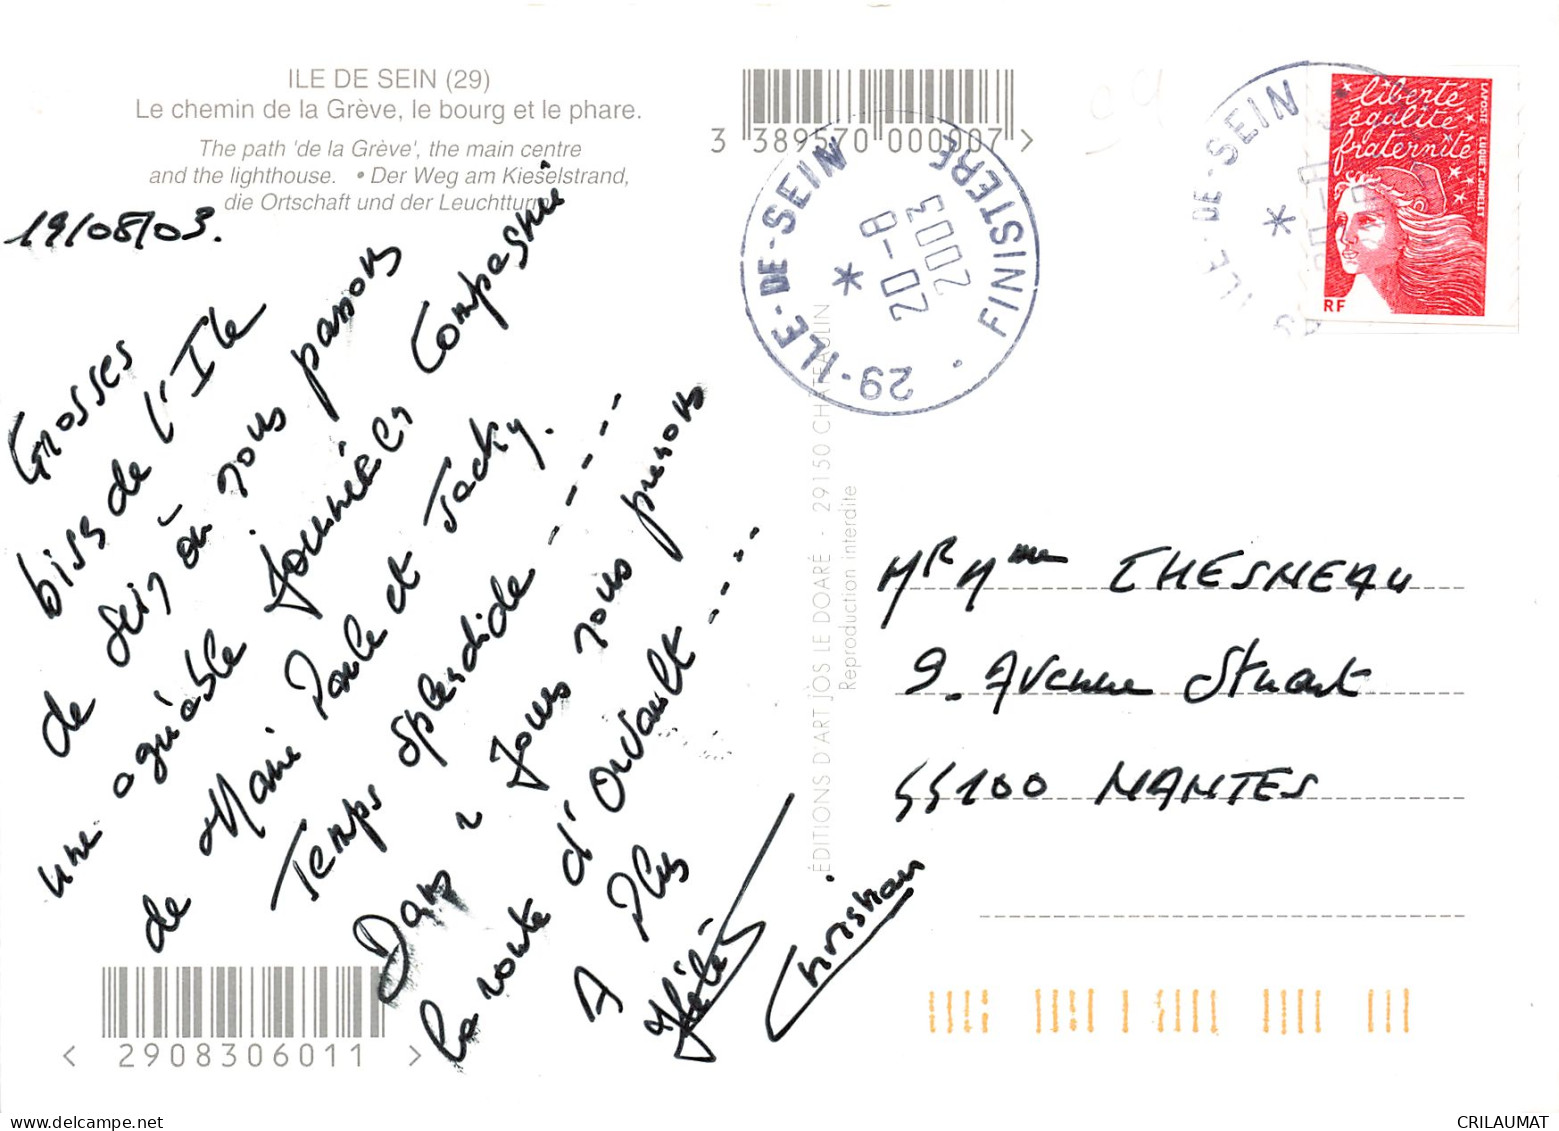 ILE DE SEIN (29)
Le chemin de la Grève, le bourg et le phare.
The path 'de la Grève', the main centre
and the lighthouse. • Der Weg am Kieselstrand,
die Ortschaft und der Leuchtturm.
19/08/03.
Grosses
biss de l'Ile
de Sein où nous passons
une agréable Journéecs Compagnie
de Marie Paule et Jacky.
Temps splendide -----
Dans 2 Jours nous prenons
la route d'Orvault ----
A Plus
Christian
3 389570 000807 >
29-ILE-DE-SEIN
FINISTERE
20-8
2003
29-ILE-DE-SEIN
liberté
égalité
fraternité
LAPOSTE LUQUET. JUMELET
RF
Mr Mme CHESNEAU
9. Avenue Stuart
44100 NANTES
ÉDITIONS D'ART JOS LE DOARÉ - 29150 CHATEAULIN
Reproduction interdite
< 2908306011 >
www.delcampe.net
CRILAUMAT